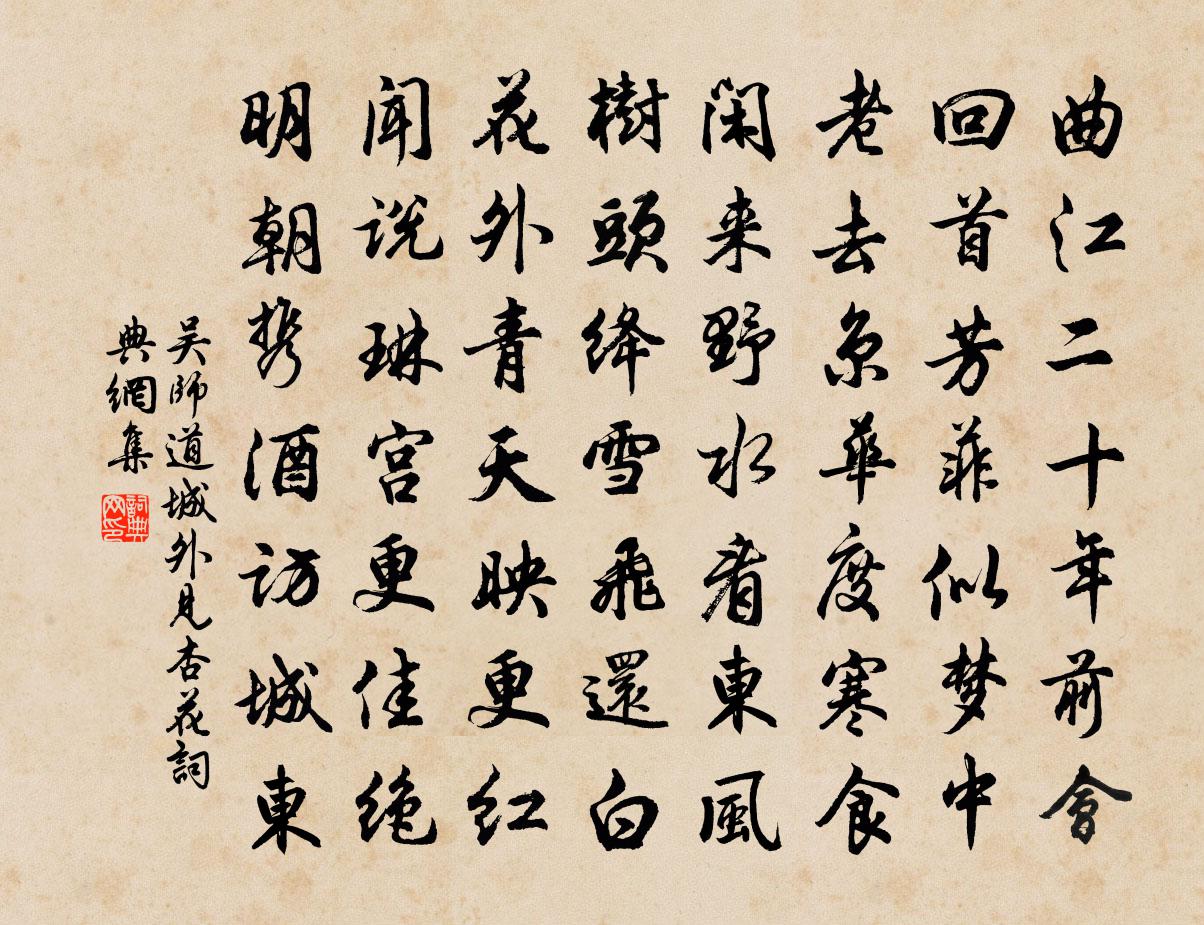 曲江二十年前會
回首芳菲似梦中
老去京華度寒食
閑来野水看東風
樹頭絳雪飛還白
花外青天映更红
聞説琳宫更佳絶
明朝携酒訪城東
吴師道城外見杏花詞
典網集
詞典
网印